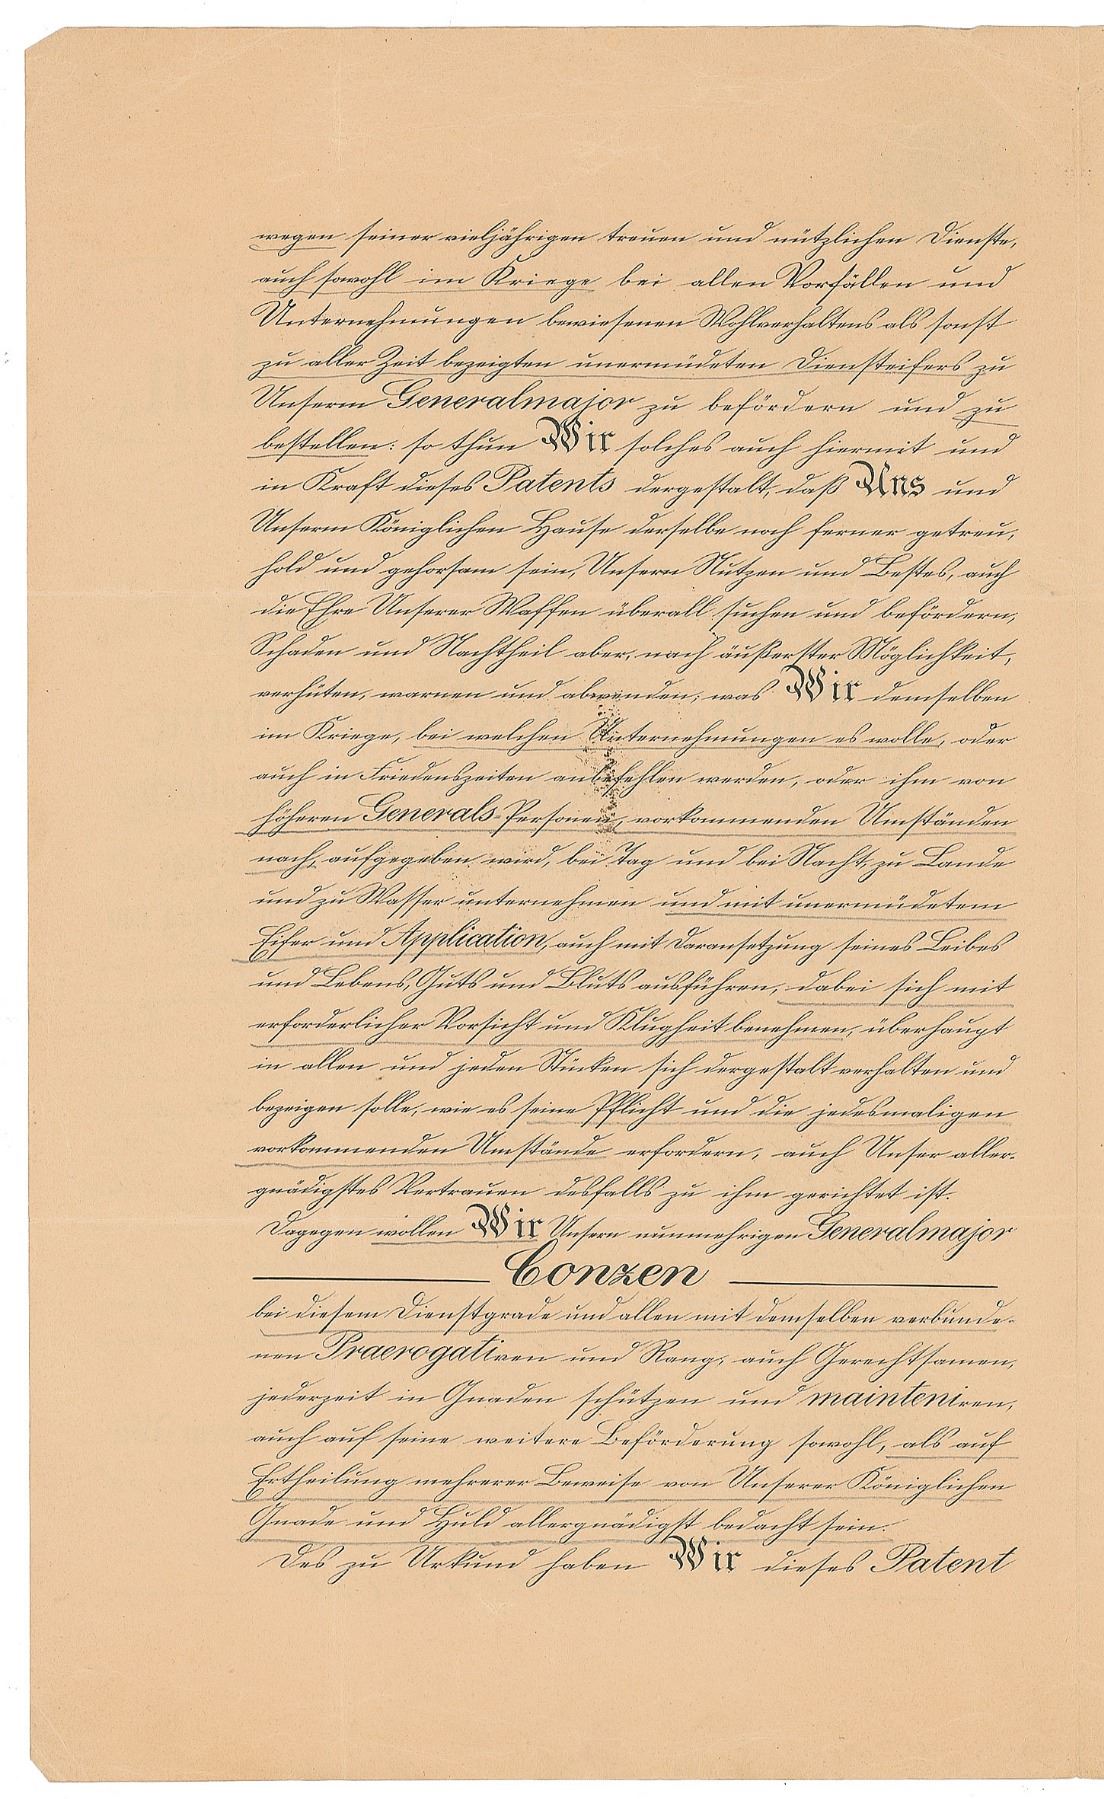 wegen seiner vieljährigen treuen und nützlichen Dienste,
auch sowohl im Kriege bei allen Vorfällen und
Unternehmungen bewiesenen Wohlverhaltens als sonst
zu aller Zeit bezeigten unermüdeten Diensteifers zu
Unserm Generalmajor zu befördern und zu
bestellen: so thun Wir solches auch hiermit und
in Kraft dieses Patents dergestalt, daß Uns und
Unserm Königlichen Hause derselbe noch ferner getreu,
hold und gehorsam sein, Unsern Nutzen und Bestes, auch
die Ehre Unserer Waffen überall suchen und befördern,
Schaden und Nachtheil aber, nach äußerster Möglichkeit,
verhüten, warnen und abwenden; was Wir demselben
im Kriege, bei welchen Unternehmungen es wolle, oder
auch in Friedenszeiten anbefehlen werden, oder ihm von
höheren Generals-Personen, vorkommenden Umständen
nach, aufgegeben wird, bei Tag und bei Nacht, zu Lande
und zu Wasser unternehmen und mit unermüdetem
Eifer und Application, auch mit Daransetzung seines Leibes
und Lebens, Guts und Bluts ausführen, dabei sich mit
erforderlicher Vorsicht und Klugheit benehmen, überhaupt
in allen und jeden Stücken sich dergestalt verhalten und
bezeigen solle, wie es seine Pflicht und die jedesmaligen
vorkommenden Umstände erfordern, auch Unser aller-
gnädigstes Vertrauen desfalls zu ihm gerichtet ist.
Dagegen wollen Wir Unsern nunmehrigen Generalmajor
Conzen
bei diesem Dienstgrade und allen mit demselben verbunde-
nen Praerogativen und Rang, auch Gerechtsamen,
jederzeit in Gnaden schützen und mainteniren,
auch auf seine weitere Beförderung sowohl, als auf
Ertheilung mehrerer Beweise von Unserer Königlichen
Gnade und Huld allergnädigst bedacht sein.
Des zu Urkund haben Wir dieses Patent